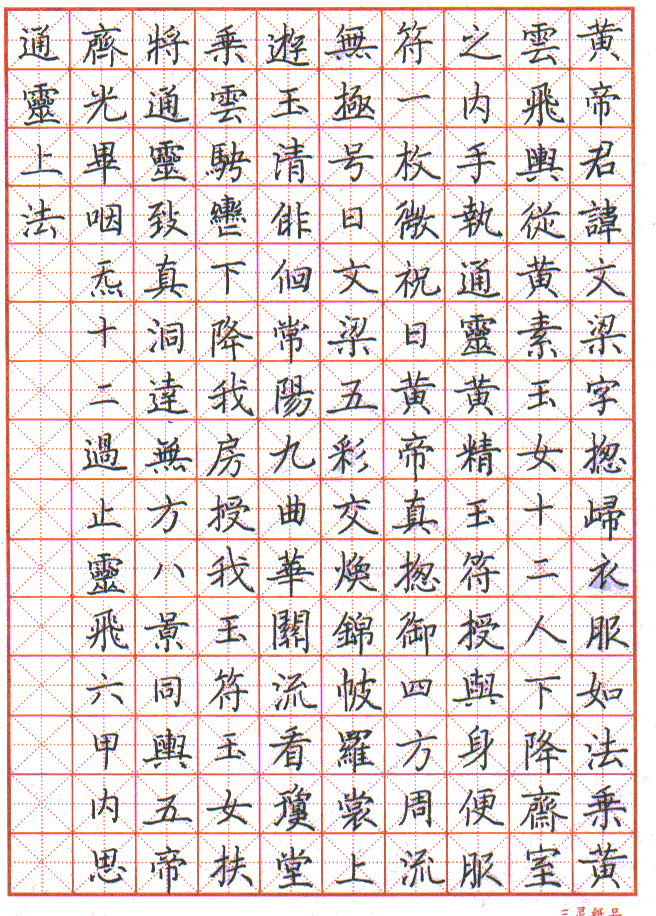 黄帝君諱文梁字揔歸衣服如法乗黄
雲飛輿從黄素玉女十二人下降齋室
之内手執通靈黄精玉符授與身便服
符一枚微祝曰黄帝真揔御四方周流
無極号曰文梁五彩交煥錦帔羅裳上
遊玉清俳佪常陽九曲華關流看瓊堂
乗雲駃轡下降我房授我玉符玉女扶
將通靈致真洞達無方八景同輿五帝
齊光畢咽炁十二過止靈飛六甲内思
通靈上法
三灵纸品